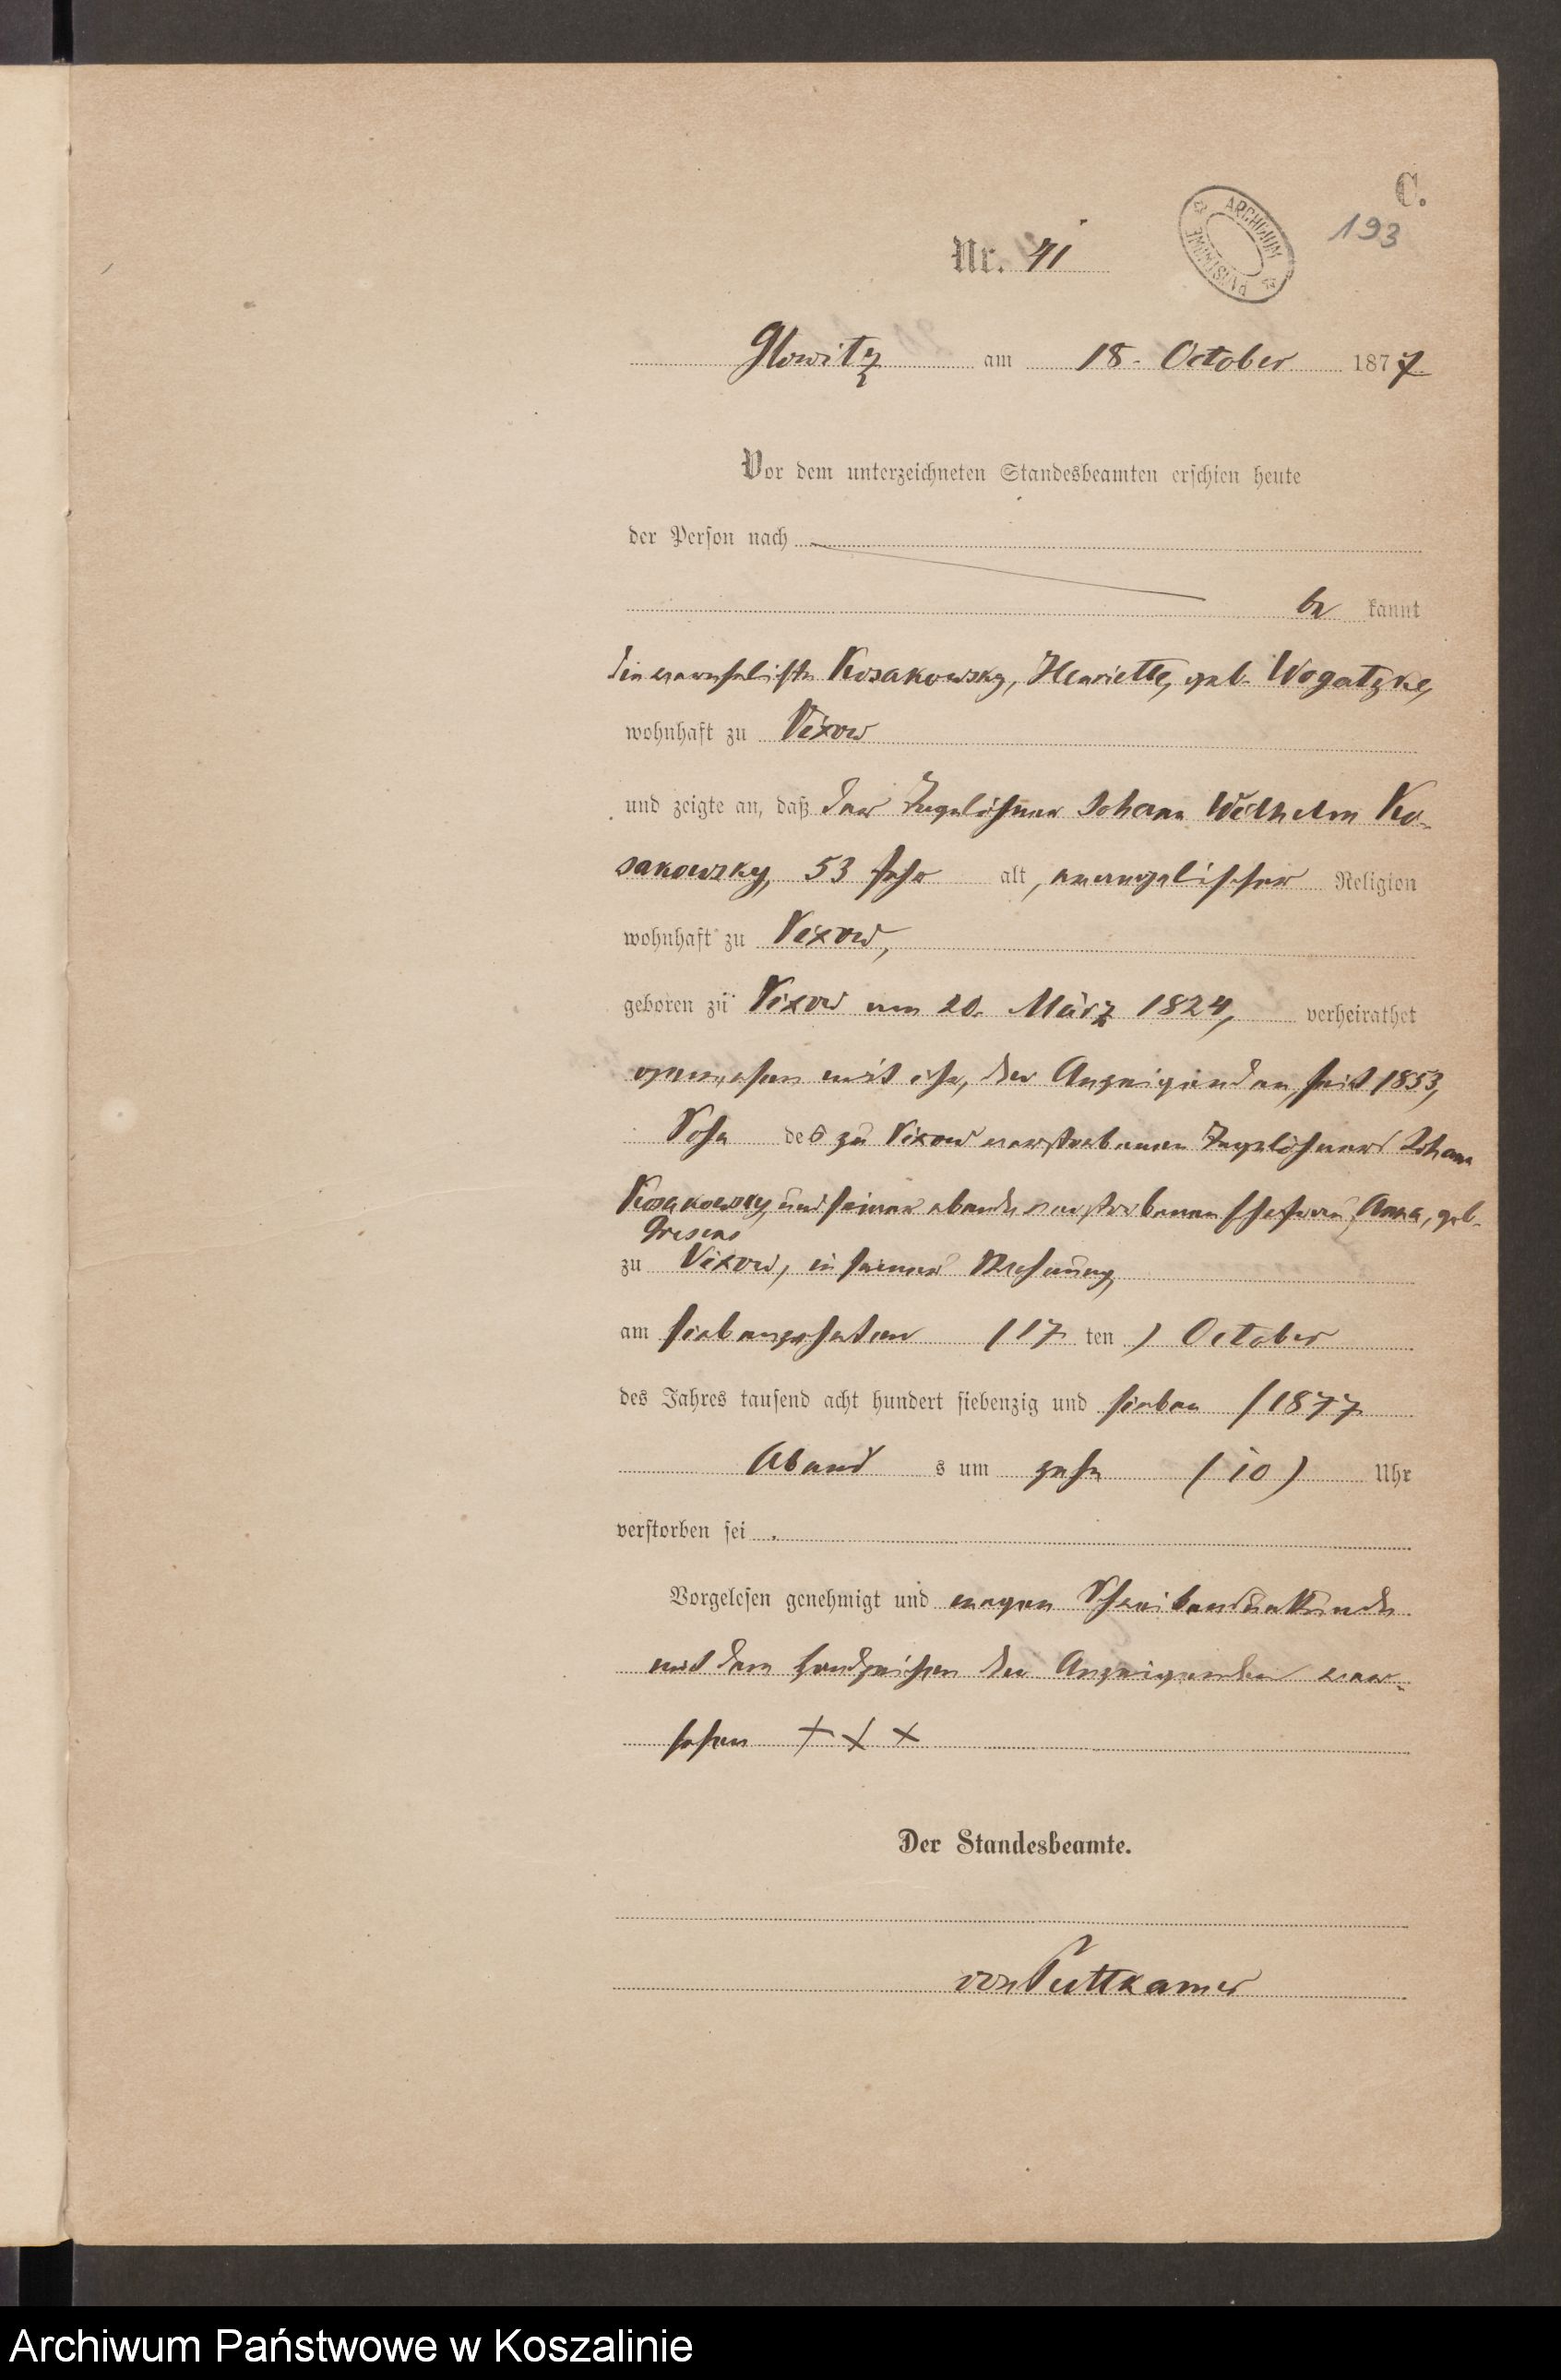 C.
193
ARCHIWUM PAŃSTWOWE
Nr. 41
Glowitz am 18. October 1877
Vor dem unterzeichneten Standesbeamten erschien heute
der Person nach
be kannt
die verehelichte Kosakowsky, Henriette, geb. Wogatzke,
wohnhaft zu Vixow
und zeigte an, daß der Tagelöhner Johann Wilhelm Ko-
sakowsky, 53 Jahr alt, evangelischer Religion
wohnhaft zu Vixow,
geboren zu Vixow am 20. März 1824, verheirathet
gewesen mit ihr, der Anzeigenden, seit 1853,
Sohn des zu Vixow verstorbenen Tagelöhners Johann
Kosakowsky und seiner ebenda verstorbenen Ehefrau, Anna, geb.
zu Vixow, in seiner Wohnung
am siebenzehnten (17 ten) October
des Jahres tausend acht hundert siebenzig und sieben (1877
Abend s um zehn (10) Uhr
verstorben sei.
Vorgelesen genehmigt und wegen Schreibensunkunde
mit dem Handzeichen der Anzeigenden ver-
sehen + + +
Der Standesbeamte.
von Puttkamer
Archiwum Państwowe w Koszalinie